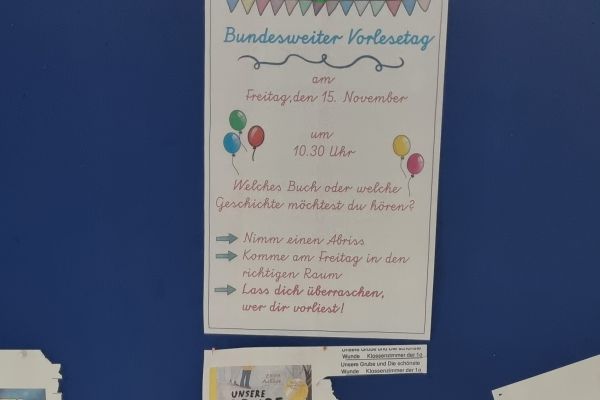 Bundesweiter Vorlesetag
am
Freitag, den 15. November
um
10.30 Uhr
Welches Buch oder welche
Geschichte möchtest du hören?
Nimm einen Abriss
Komme am Freitag in den
richtigen Raum
Lass dich überraschen,
wer dir vorliest!
Unsere Grube und Die schönste
Wunde Klassenzimmer der 1a
Unsere Grube und Die schönste
Wunde Klassenzimmer der 1a
UNSERE